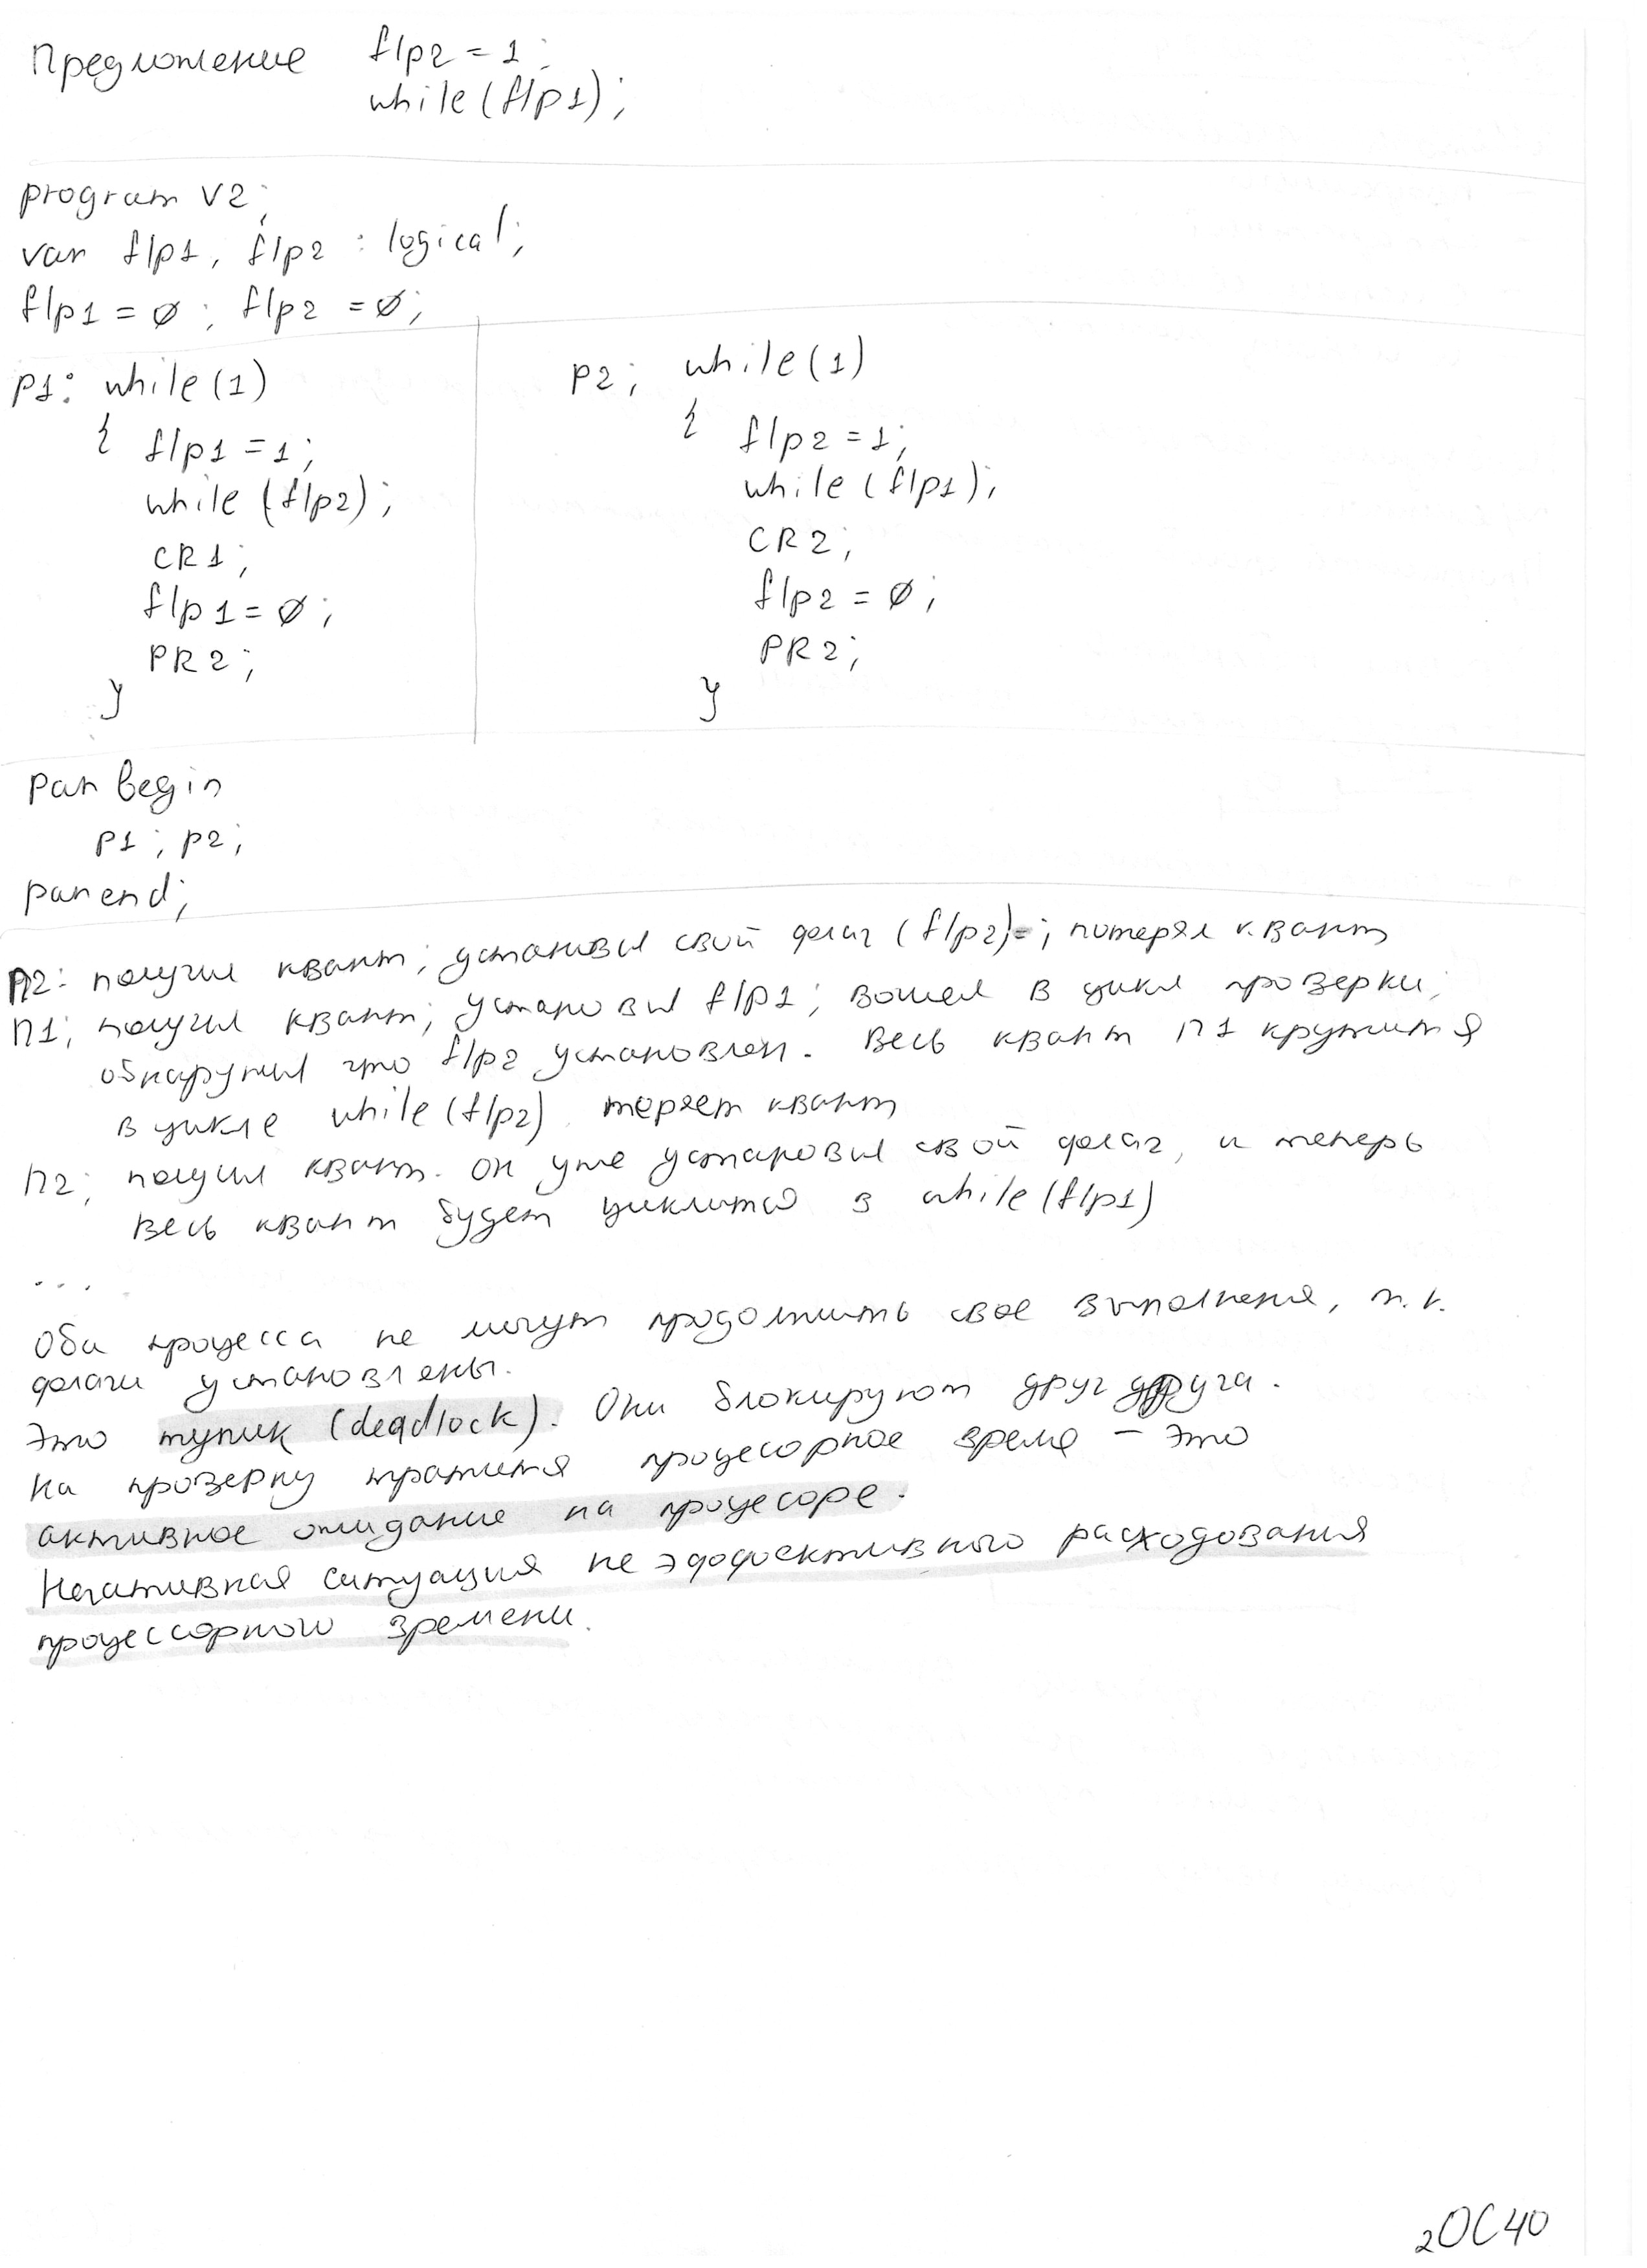 Предложение flp2 = 1;
while(flp1);
program V2;
var flp1, flp2 : logical;
flp1 = Ø; flp2 = Ø;
p1: while(1)
{ flp1 = 1;
while (flp2);
CR1;
flp1 = Ø;
PR2;
}
P2; while(1)
{ flp2 = 1;
while (flp1);
CR2;
flp2 = Ø;
PR2;
}
par begin
P1; p2;
parend;
П2: получил квант; установил свой флаг (flp2)=; потерял квант
П1; получил квант; установил flp1; вошел в цикл проверки;
обнаружил что flp2 установлен. Весь квант П1 крутится
в цикле while(flp2) теряет квант
П2; получил квант. Он уже установил свой флаг, и теперь
весь квант будет циклится в while(flp1)
...
Оба процесса не могут продолжить свое выполнения, т.к.
флаги установлены.
Это тупик (deadlock). Они блокируют друг друга.
На проверку тратится процесорное время – это
активное ожидание на процесоре.
Негативная ситуация не эффективного расходования
процессорного времени.
2ОС40